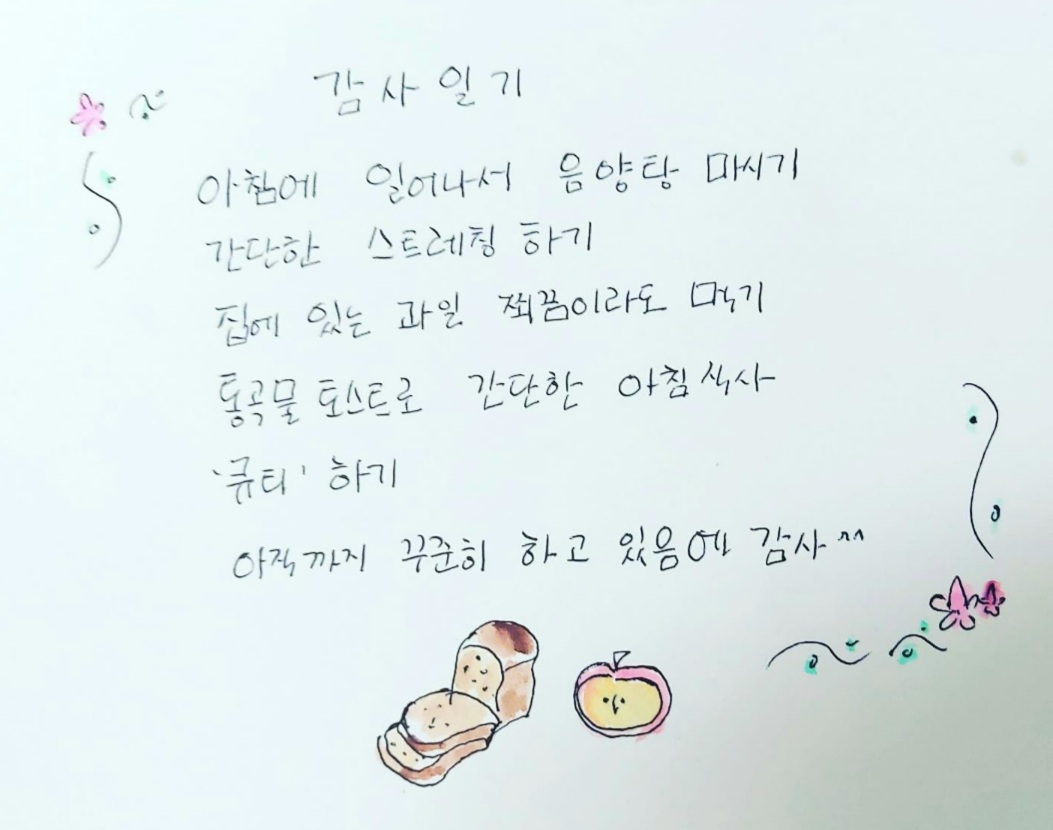 감사일기
아침에 일어나서 음양탕 마시기
간단한 스트레칭 하기
집에 있는 과일 쬐끔이라도 먹기
통곡물 토스트로 간단한 아침식사
'큐티' 하기
아직까지 꾸준히 하고 있음에 감사^^